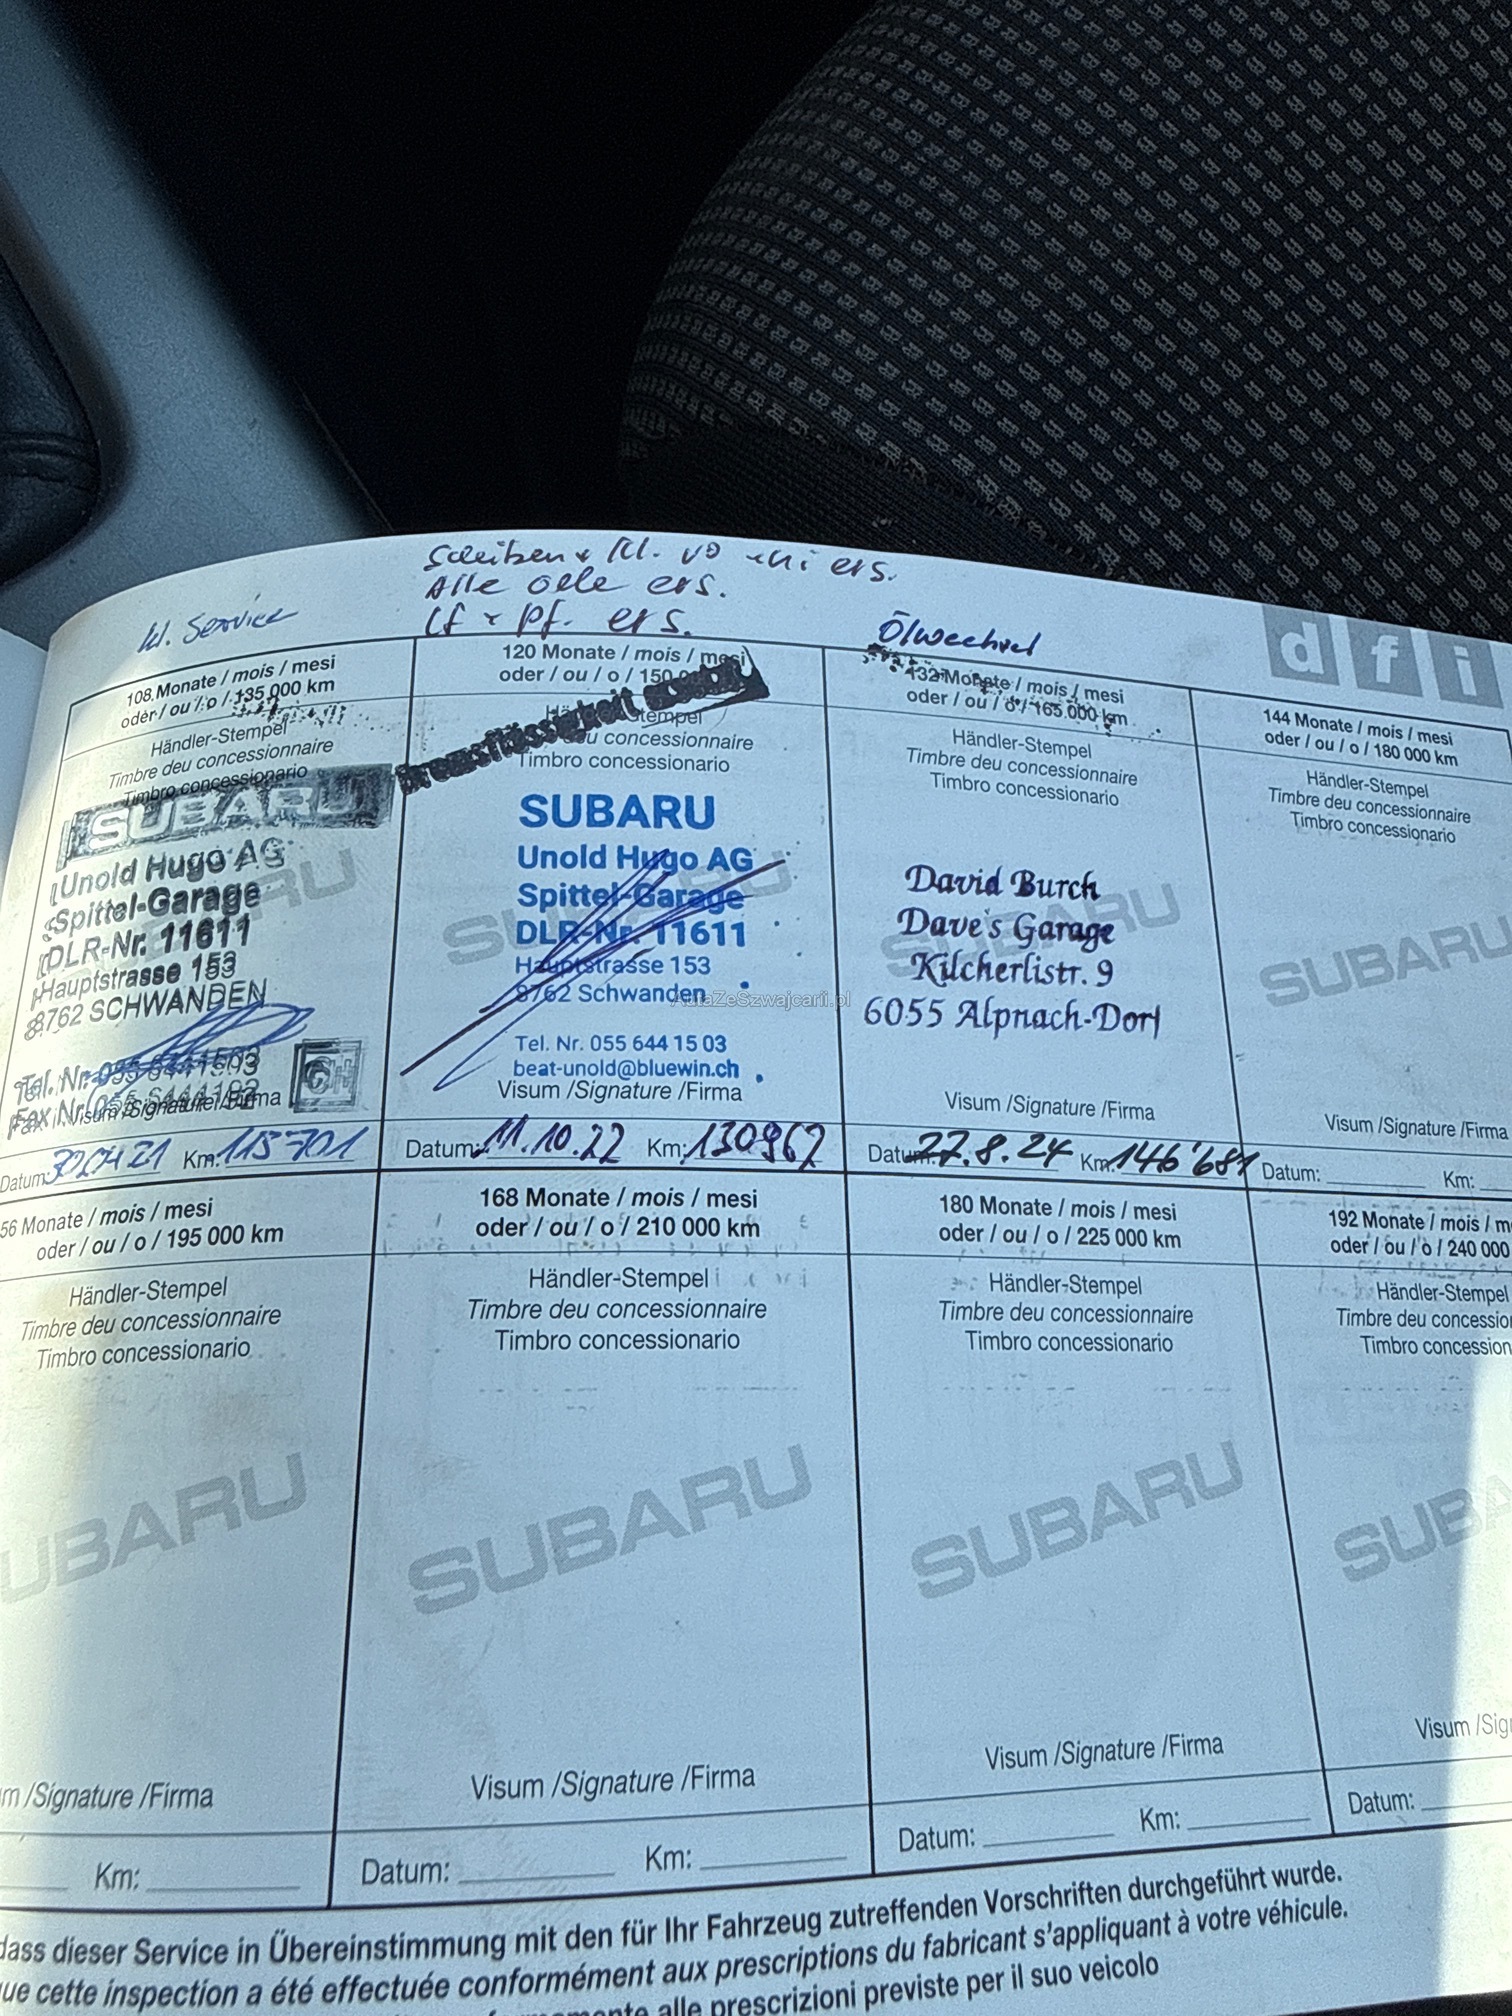 Scheiben + Kl. vo + hi ers.
Alle Oele ers.
Lf + pf. ers.
kl. Service
Ölwechsel
d f i
108 Monate / mois / mesi
oder / ou / o / 135 000 km
Händler-Stempel
Timbre deu concessionnaire
Timbro concessionario
SUBARU
Unold Hugo AG
Spittel-Garage
DLR-Nr. 11611
Hauptstrasse 153
8762 SCHWANDEN
Tel. Nr. 055 6441503
Fax Nr. 055 6441192
Visum /Signature /Firma
Datum: 30.04 21 Km: 115 701
120 Monate / mois / mesi
oder / ou / o / 150
Bremsflüssigkeit
Händler-Stempel
Timbre deu concessionnaire
Timbro concessionario
SUBARU
Unold Hugo AG
Spittel-Garage
DLR-Nr. 11611
Hauptstrasse 153
8762 Schwanden
Tel. Nr. 055 644 15 03
beat-unold@bluewin.ch
Visum /Signature /Firma
Datum: 11.10.22 Km: 130962
AutaZeSzwajcarii.pl
132 Monate / mois / mesi
oder / ou / o / 165.000 km
Händler-Stempel
Timbre deu concessionnaire
Timbro concessionario
SUBARU
David Burch
Dave's Garage
Kilcherlistr. 9
6055 Alpnach-Dorf
Visum /Signature /Firma
Datum: 27.8.24 Km: 146'681
144 Monate / mois / mesi
oder / ou / o / 180 000 km
Händler-Stempel
Timbre deu concessionnaire
Timbro concessionario
SUBARU
Visum /Signature /Firma
Datum: Km:
56 Monate / mois / mesi
oder / ou / o / 195 000 km
Händler-Stempel
Timbre deu concessionnaire
Timbro concessionario
SUBARU
um /Signature /Firma
Km:
168 Monate / mois / mesi
oder / ou / o / 210 000 km
Händler-Stempel
Timbre deu concessionnaire
Timbro concessionario
SUBARU
Visum /Signature /Firma
Datum: Km:
180 Monate / mois / mesi
oder / ou / o / 225 000 km
Händler-Stempel
Timbre deu concessionnaire
Timbro concessionario
SUBARU
Visum /Signature /Firma
Datum: Km:
192 Monate / mois / m
oder / ou / o / 240 000
Händler-Stempel
Timbre deu concessio
Timbro concession
SUBA
Visum /Sig
Datum:
dass dieser Service in Übereinstimmung mit den für Ihr Fahrzeug zutreffenden Vorschriften durchgeführt wurde.
que cette inspection a été effectuée conformément aux prescriptions du fabricant s'appliquant à votre véhicule.
alle prescrizioni previste per il suo veicolo